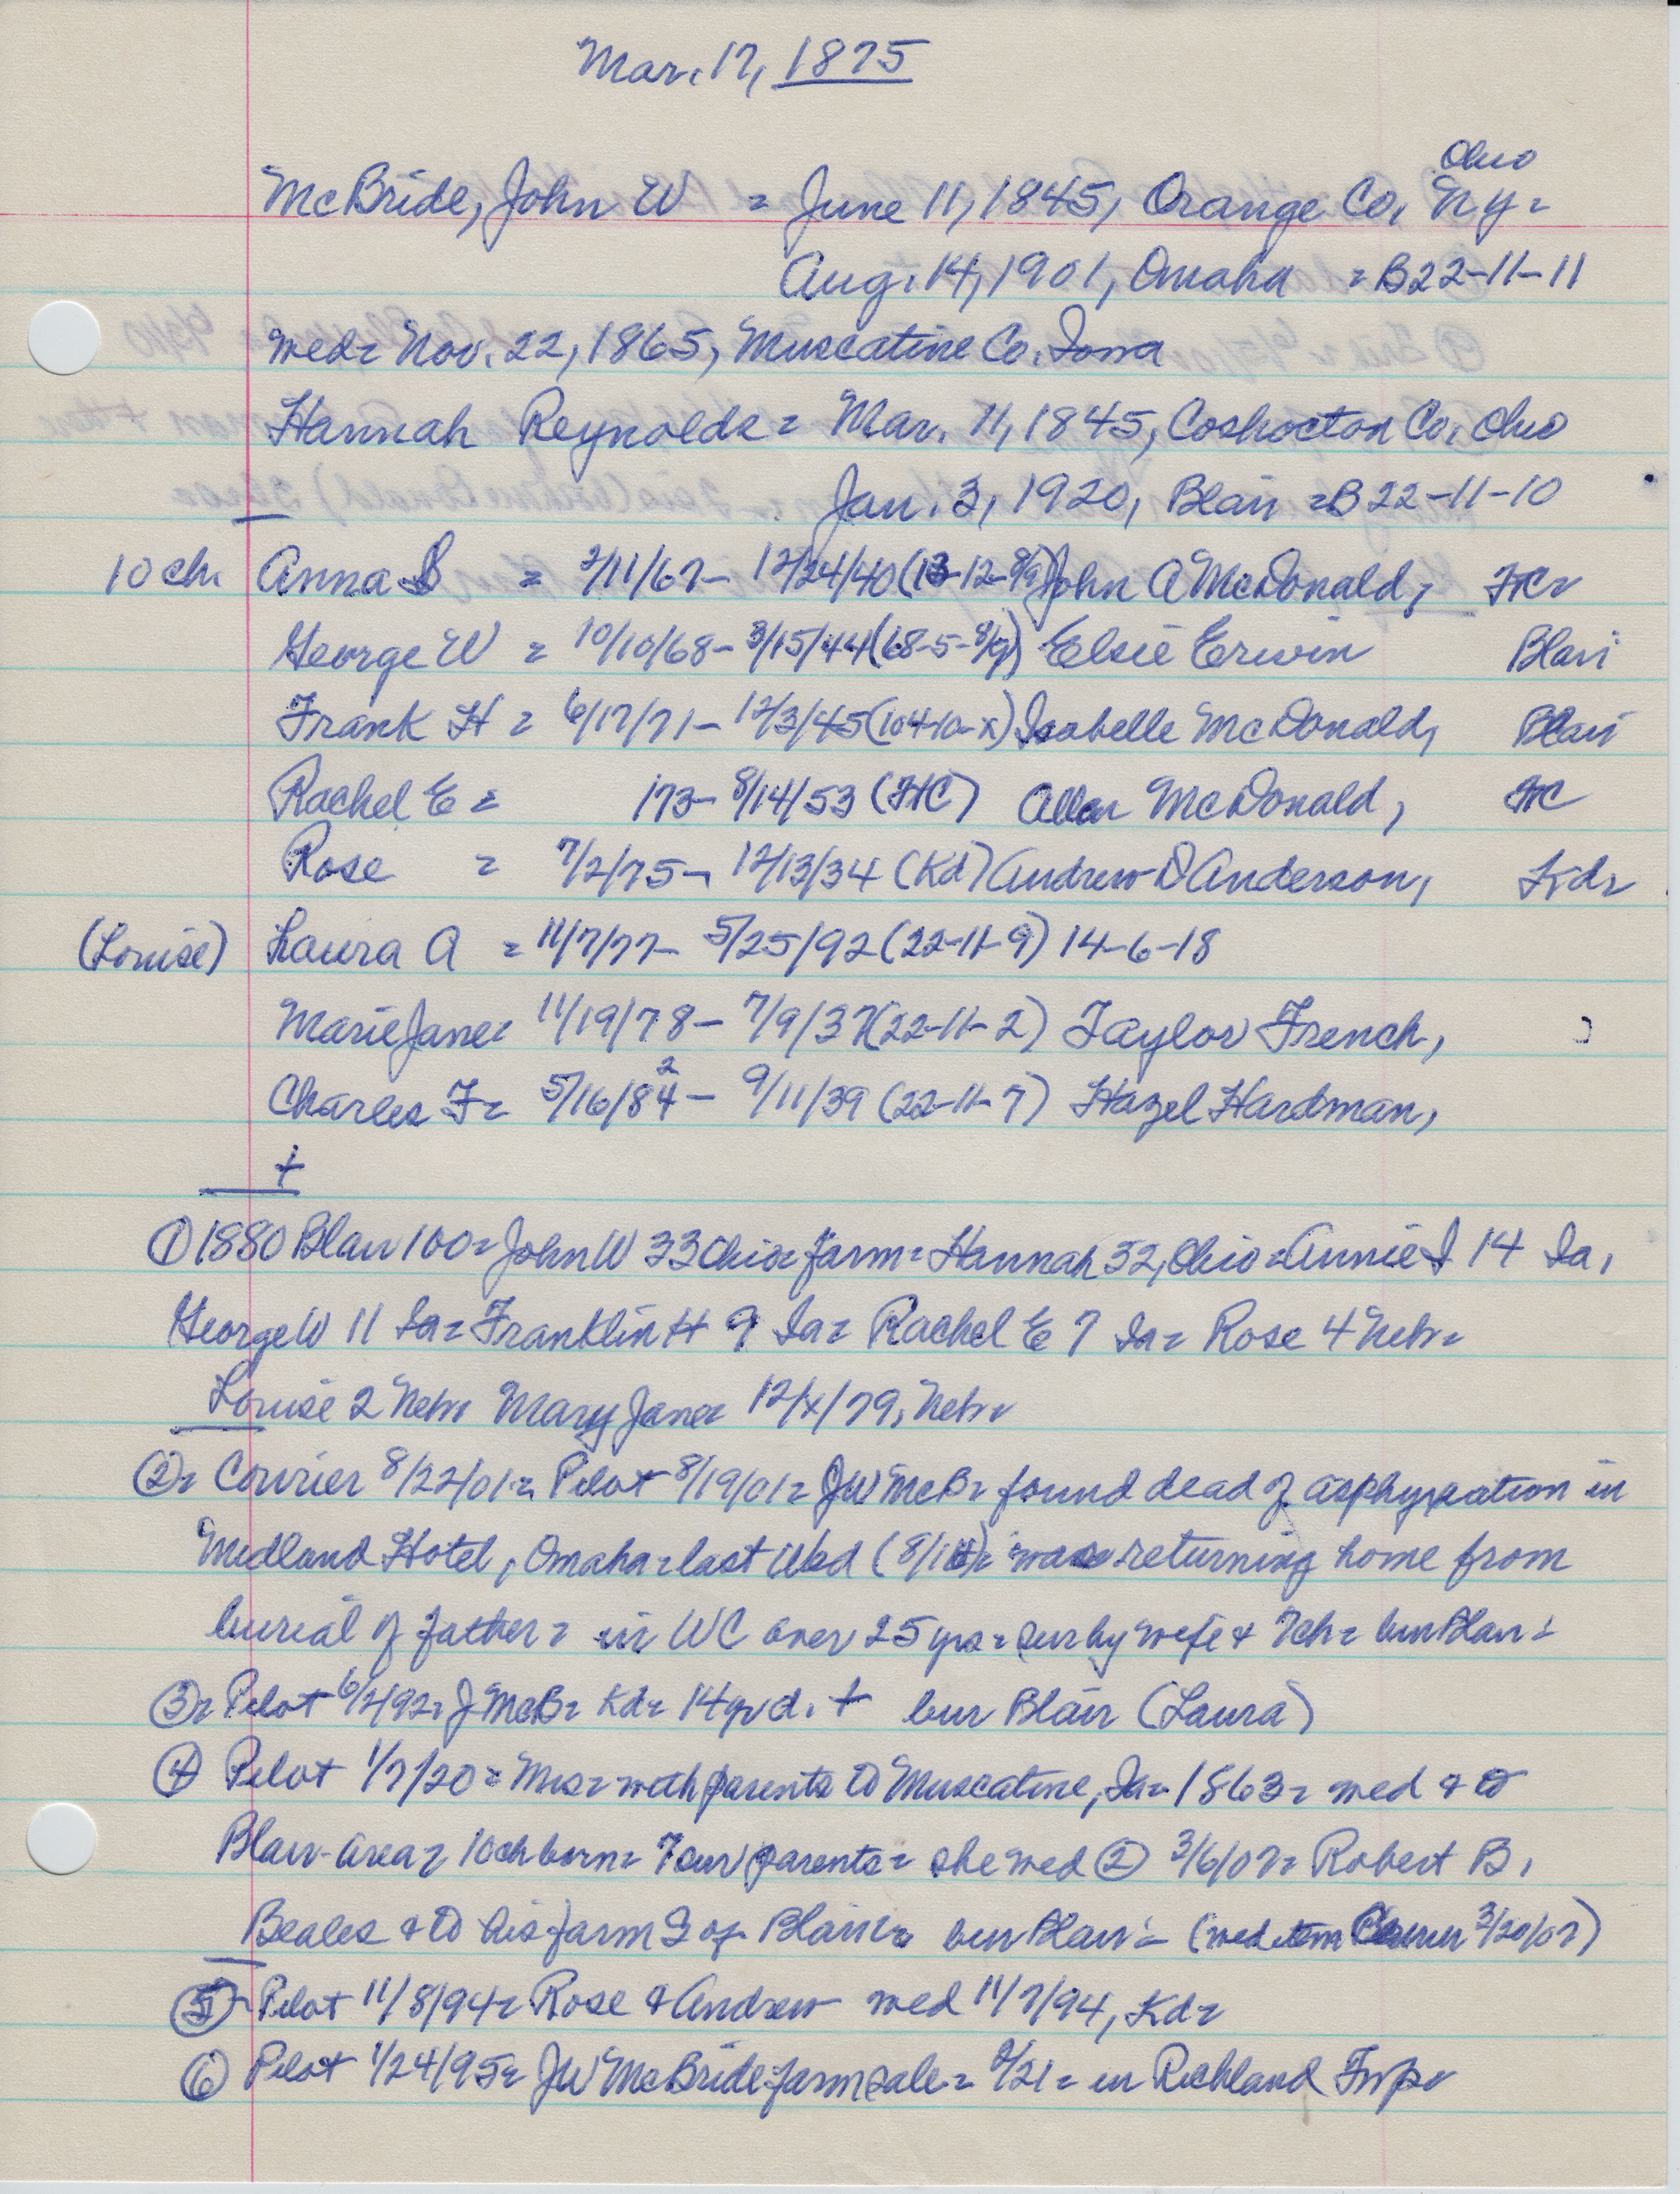 Mar. 17, 1875
Ohio
McBride, John W = June 11, 1845, Orange Co. NY =
Aug. 14, 1901, Omaha = B22-11-11
wed = Nov. 22, 1865, Muscatine Co. Iowa
Hannah Reynolds = Mar. 11, 1845, Coshocton Co. Ohio
Jan. 3, 1920, Blair = B 22-11-10
10 ch. Anna = 2/11/67 - 12/24/40 (13-12-8/9) John A McDonald,
George W = 10/10/68 - 3/15/44 (68-5-8/9) Elsie Erwin Blair
Frank H = 6/17/71 - 12/3/45 (104-10-x) Isabelle McDonald, Blair
Rachel E = /73 - 8/14/53 (HC) Allan McDonald, HC
Rose = 7/2/75 - 12/13/34 (Kd) Andrew D Anderson, Kd =
(Louise) Laura A = 11/7/77 - 5/25/92 (22-11-9) 14-6-18
Marie Jane = 11/19/78 - 7/9/37 (22-11-2) Taylor French,
2
Charles F = 5/16/84 - 9/11/39 (22-11-7) Hazel Hardman,
+
① 1880 Blair 100 = John W 33 Ohio = farm = Hannah 32, Ohio = Annie I 14 Ia,
George W 11 Ia = Franklin H 9 Ia = Rachel E 7 Ia = Rose 4 Nebr =
Louise 2 Nebr Mary Jane = 12/x/79, Nebr =
② = Courier 8/22/01 = Pilot 8/19/01 = JW McB = found dead of asphyxation in
Midland Hotel, Omaha = last Wed (8/14) = was returning home from
burial of father = in WC over 25 yrs = sur by wife + 7 ch = bur Blair =
③ = Pilot 6/2/92 = J McB = Kd = 14 yr d. + bur Blair (Laura)
④ Pilot 1/7/20 = Mrs = with parents to Muscatine, Ia = 1863 = wed & to
Blair area = 10 ch born = 7 sur parents = she wed ② 3/6/07 = Robert B.
Beales & to his farm S of Blair = bur Blair = (wed item Courier 3/20/07)
⑤ - Pilot 11/8/94 = Rose & Andrew wed 11/7/94, Kd =
⑥ Pilot 1/24/95 = JW McBride farm sale = 2/21 = in Richland Twp =